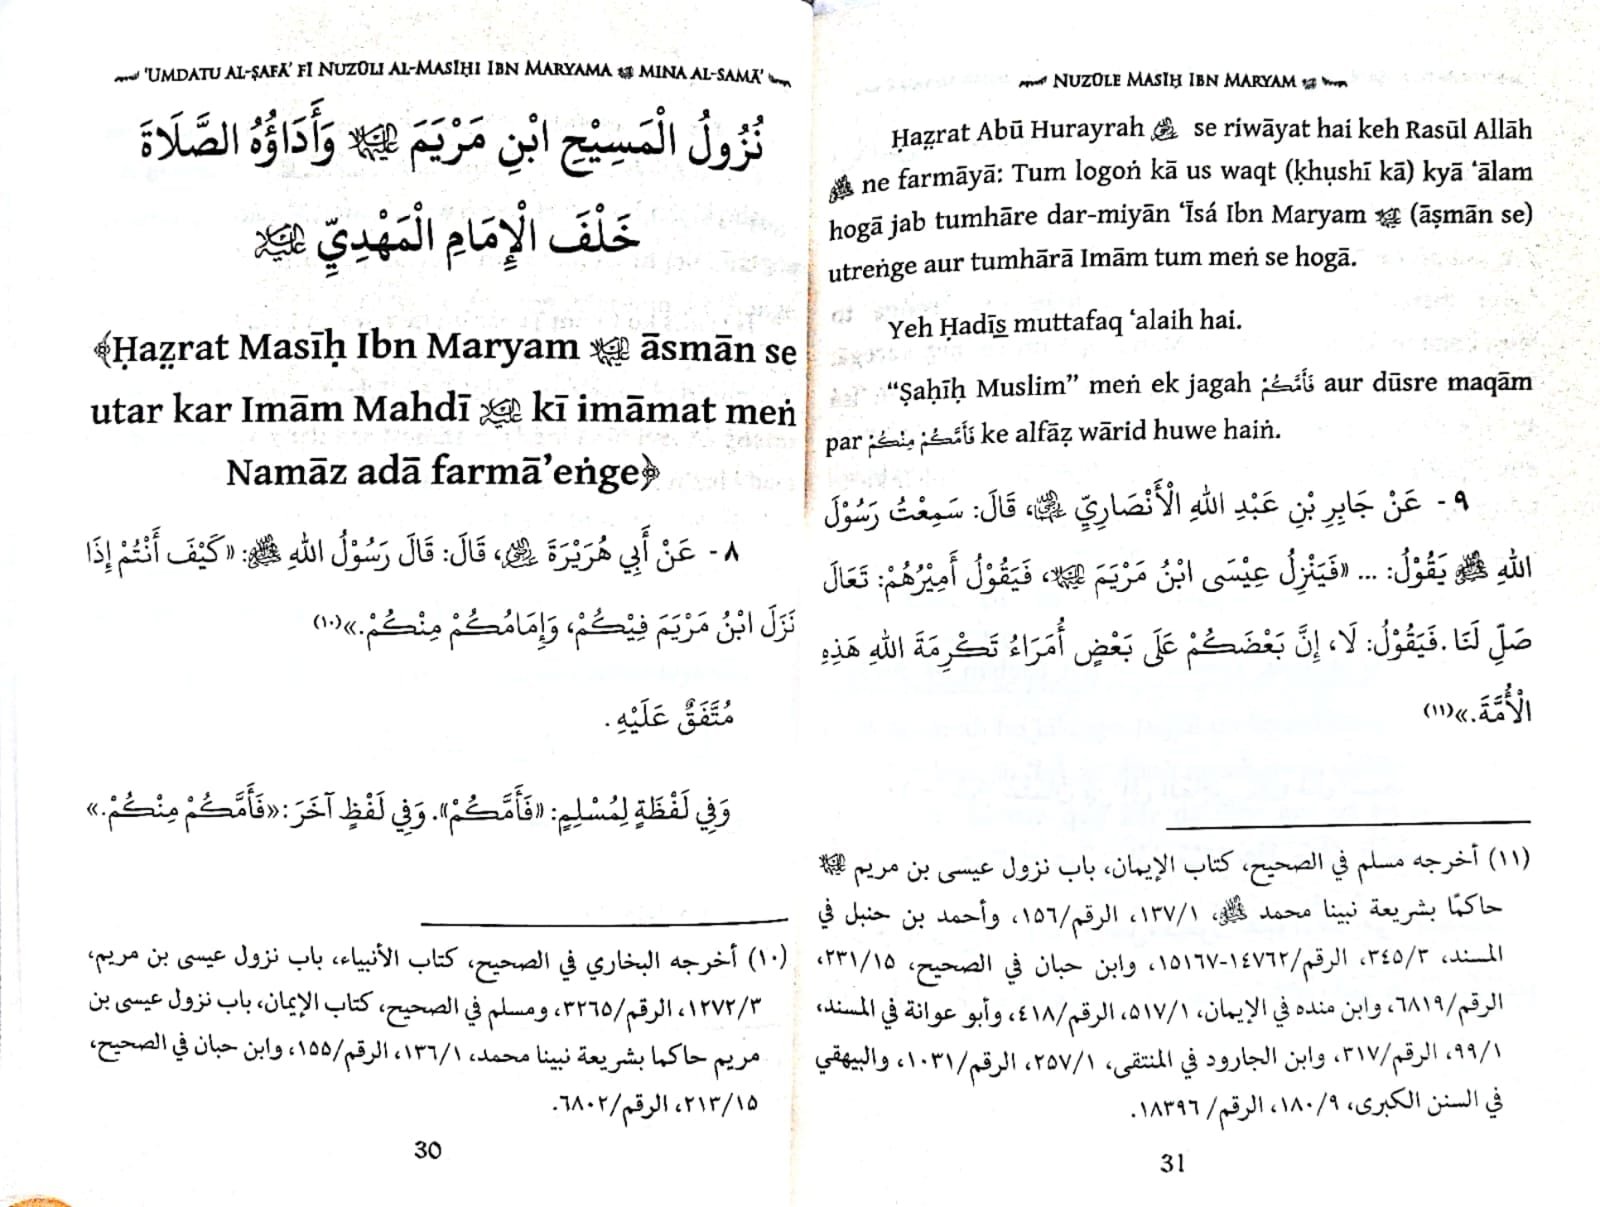 'UMDATU AL-ṢAFĀ' FĪ NUZŪLI AL-MASĪḤI IBN MARYAMA MINA AL-SAMĀ'
نُزُولُ الْمَسِيْحِ ابْنِ مَرْيَمَ ﵇ وَأَدَاؤُهُ الصَّلَاةَ
خَلْفَ الْإِمَامِ الْمَهْدِيِّ ﵇
﴾Ḥaz̤rat Masīḥ Ibn Maryam ﵇ āsmān se
utar kar Imām Mahdī ﵇ kī imāmat meṅ
Namāz adā farmā'eṅge﴿
٨- عَنْ أَبِي هُرَيْرَةَ ﵁، قَالَ: قَالَ رَسُوْلُ اللهِ ﷺ: «كَيْفَ أَنْتُمْ إِذَا
نَزَلَ ابْنُ مَرْيَمَ فِيْكُمْ، وَإِمَامُكُمْ مِنْكُمْ.»(١٠)
مُتَّفَقٌ عَلَيْهِ.
وَفِي لَفْظَةٍ لِمُسْلِمٍ: «فَأَمَّكُمْ». وَفِي لَفْظٍ آخَرَ: «فَأَمَّكُمْ مِنْكُمْ.»
(١٠) أخرجه البخاري في الصحيح، كتاب الأنبياء، باب نزول عيسى بن مريم،
١٢٧٢/٣، الرقم/٣٢٦٥، ومسلم في الصحيح، كتاب الإيمان، باب نزول عيسى بن
مريم حاكما بشريعة نبينا محمد، ١٣٦/١، الرقم/١٥٥، وابن حبان في الصحيح،
٢١٣/١٥، الرقم/٦٨٠٢.
30
NUZŪLE MASĪḤ IBN MARYAM
Ḥaz̤rat Abū Hurayrah ﵁ se riwāyat hai keh Rasūl Allāh
ﷺ ne farmāyā: Tum logoṅ kā us waqt (ḵẖụshī kā) kyā 'ālam
hogā jab tumhāre dar-miyān 'Īsá Ibn Maryam ﵇ (āṣmān se)
utreṅge aur tumhārā Imām tum meṅ se hogā.
Yeh Ḥadīs̲ muttafaq 'alaih hai.
"Ṣaḥīḥ Muslim" meṅ ek jagah فَأَمَّكُمْ aur dūsre maqām
par فَأَمَّكُمْ مِنْكُمْ ke alfāẓ wārid huwe haiṅ.
٩- عَنْ جَابِرِ بْنِ عَبْدِ اللهِ الْأَنْصَارِيِّ ﵁، قَالَ: سَمِعْتُ رَسُوْلَ
اللهِ ﷺ يَقُوْلُ: ... «فَيَنْزِلُ عِيْسَى ابْنُ مَرْيَمَ ﵇، فَيَقُوْلُ أَمِيْرُهُمْ: تَعَالَ
صَلِّ لَنَا. فَيَقُوْلُ: لَا، إِنَّ بَعْضَكُمْ عَلَى بَعْضٍ أُمَرَاءُ تَكْرِمَةَ اللهِ هَذِهِ
الْأُمَّةَ.»(١١)
(١١) أخرجه مسلم في الصحيح، كتاب الإيمان، باب نزول عيسى بن مريم ﵇
حاكمًا بشريعة نبينا محمد ﷺ، ١٣٧/١، الرقم/١٥٦، وأحمد بن حنبل في
المسند، ٣٤٥/٣، الرقم/١٤٧٦٢-١٥١٦٧، وابن حبان في الصحيح، ٢٣١/١٥،
الرقم/٦٨١٩، وابن منده في الإيمان، ٥١٧/١، الرقم/٤١٨، وأبو عوانة في المسند،
٩٩/١، الرقم/٣١٧، وابن الجارود في المنتقى، ٢٥٧/١، الرقم/١٠٣١، والبيهقي
في السنن الكبرى، ١٨٠/٩، الرقم/ ١٨٣٩٦.
31